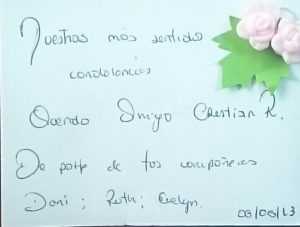 Nuestras más sentidas
condolencias
Querido Amigo Cristian R.
De parte de tus compañeros
Dani; Ruth; Evelyn.
06/06/13